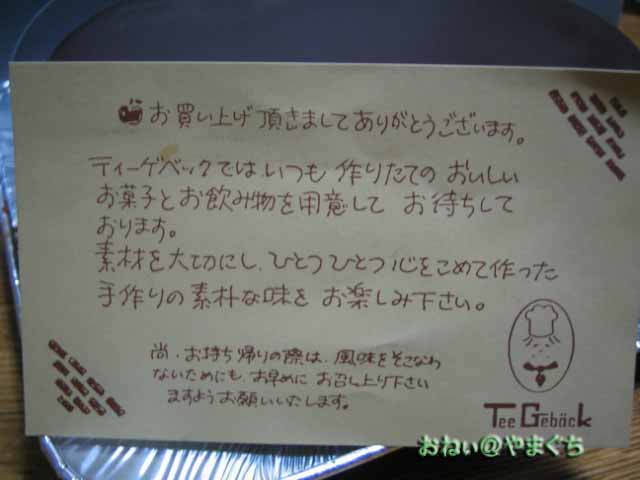 お買い上げ頂きましてありがとうございます。
ティーゲベックではいつも 作りたての おいしい
お菓子とお飲み物を用意して お待ちして
おります。
素材を大切にし、ひとつひとつ心をこめて作った
手作りの素朴な味を お楽しみ下さい。
尚、お持ち帰りの際は、風味をそこなわ
ないためにも、お早めに お召し上り下さい
ますようお願いいたします。
Tee Gebäck
おねい@やまぐち